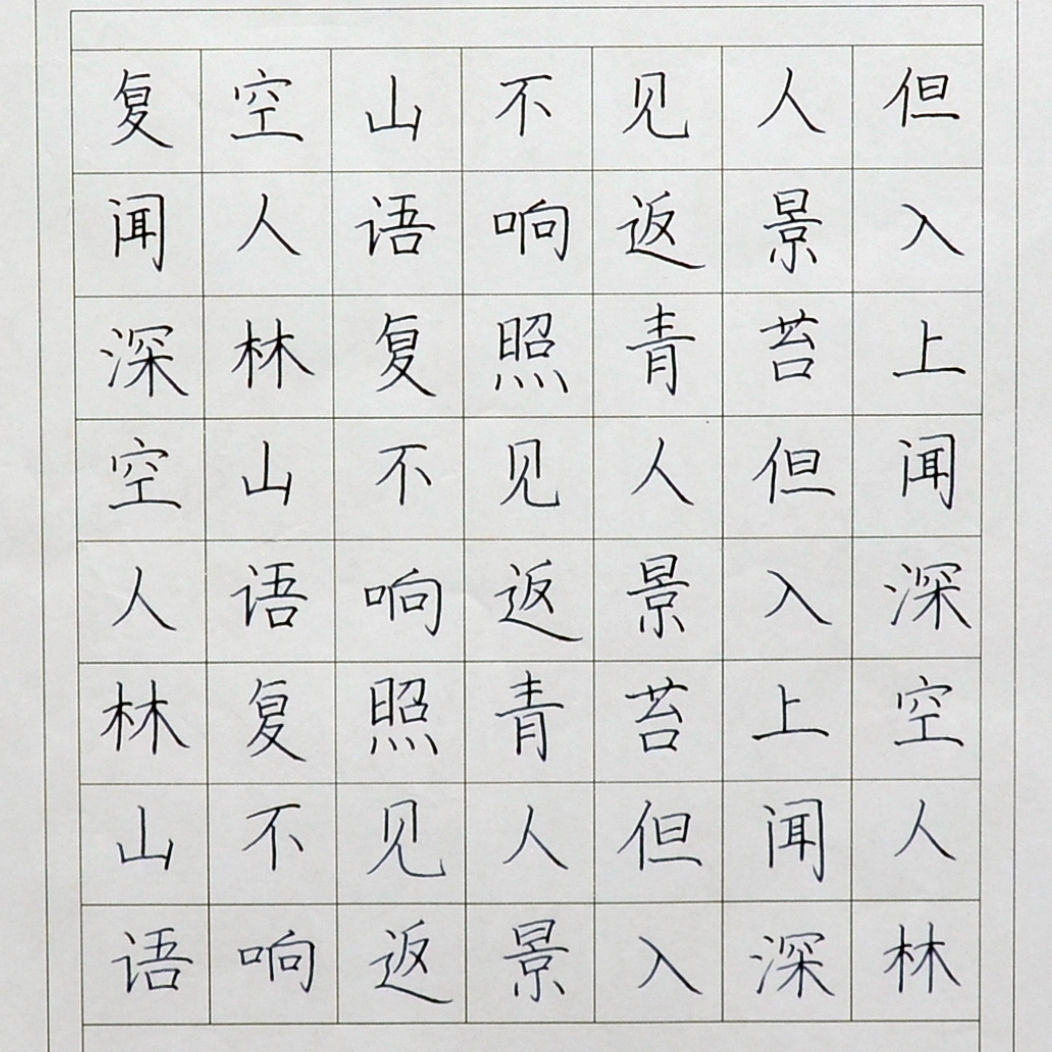 复空山不见人但
闻人语响返景入
深林复照青苔上
空山不见人但闻
人语响返景入深
林复照青苔上空
山不见人但闻人
语响返景入深林